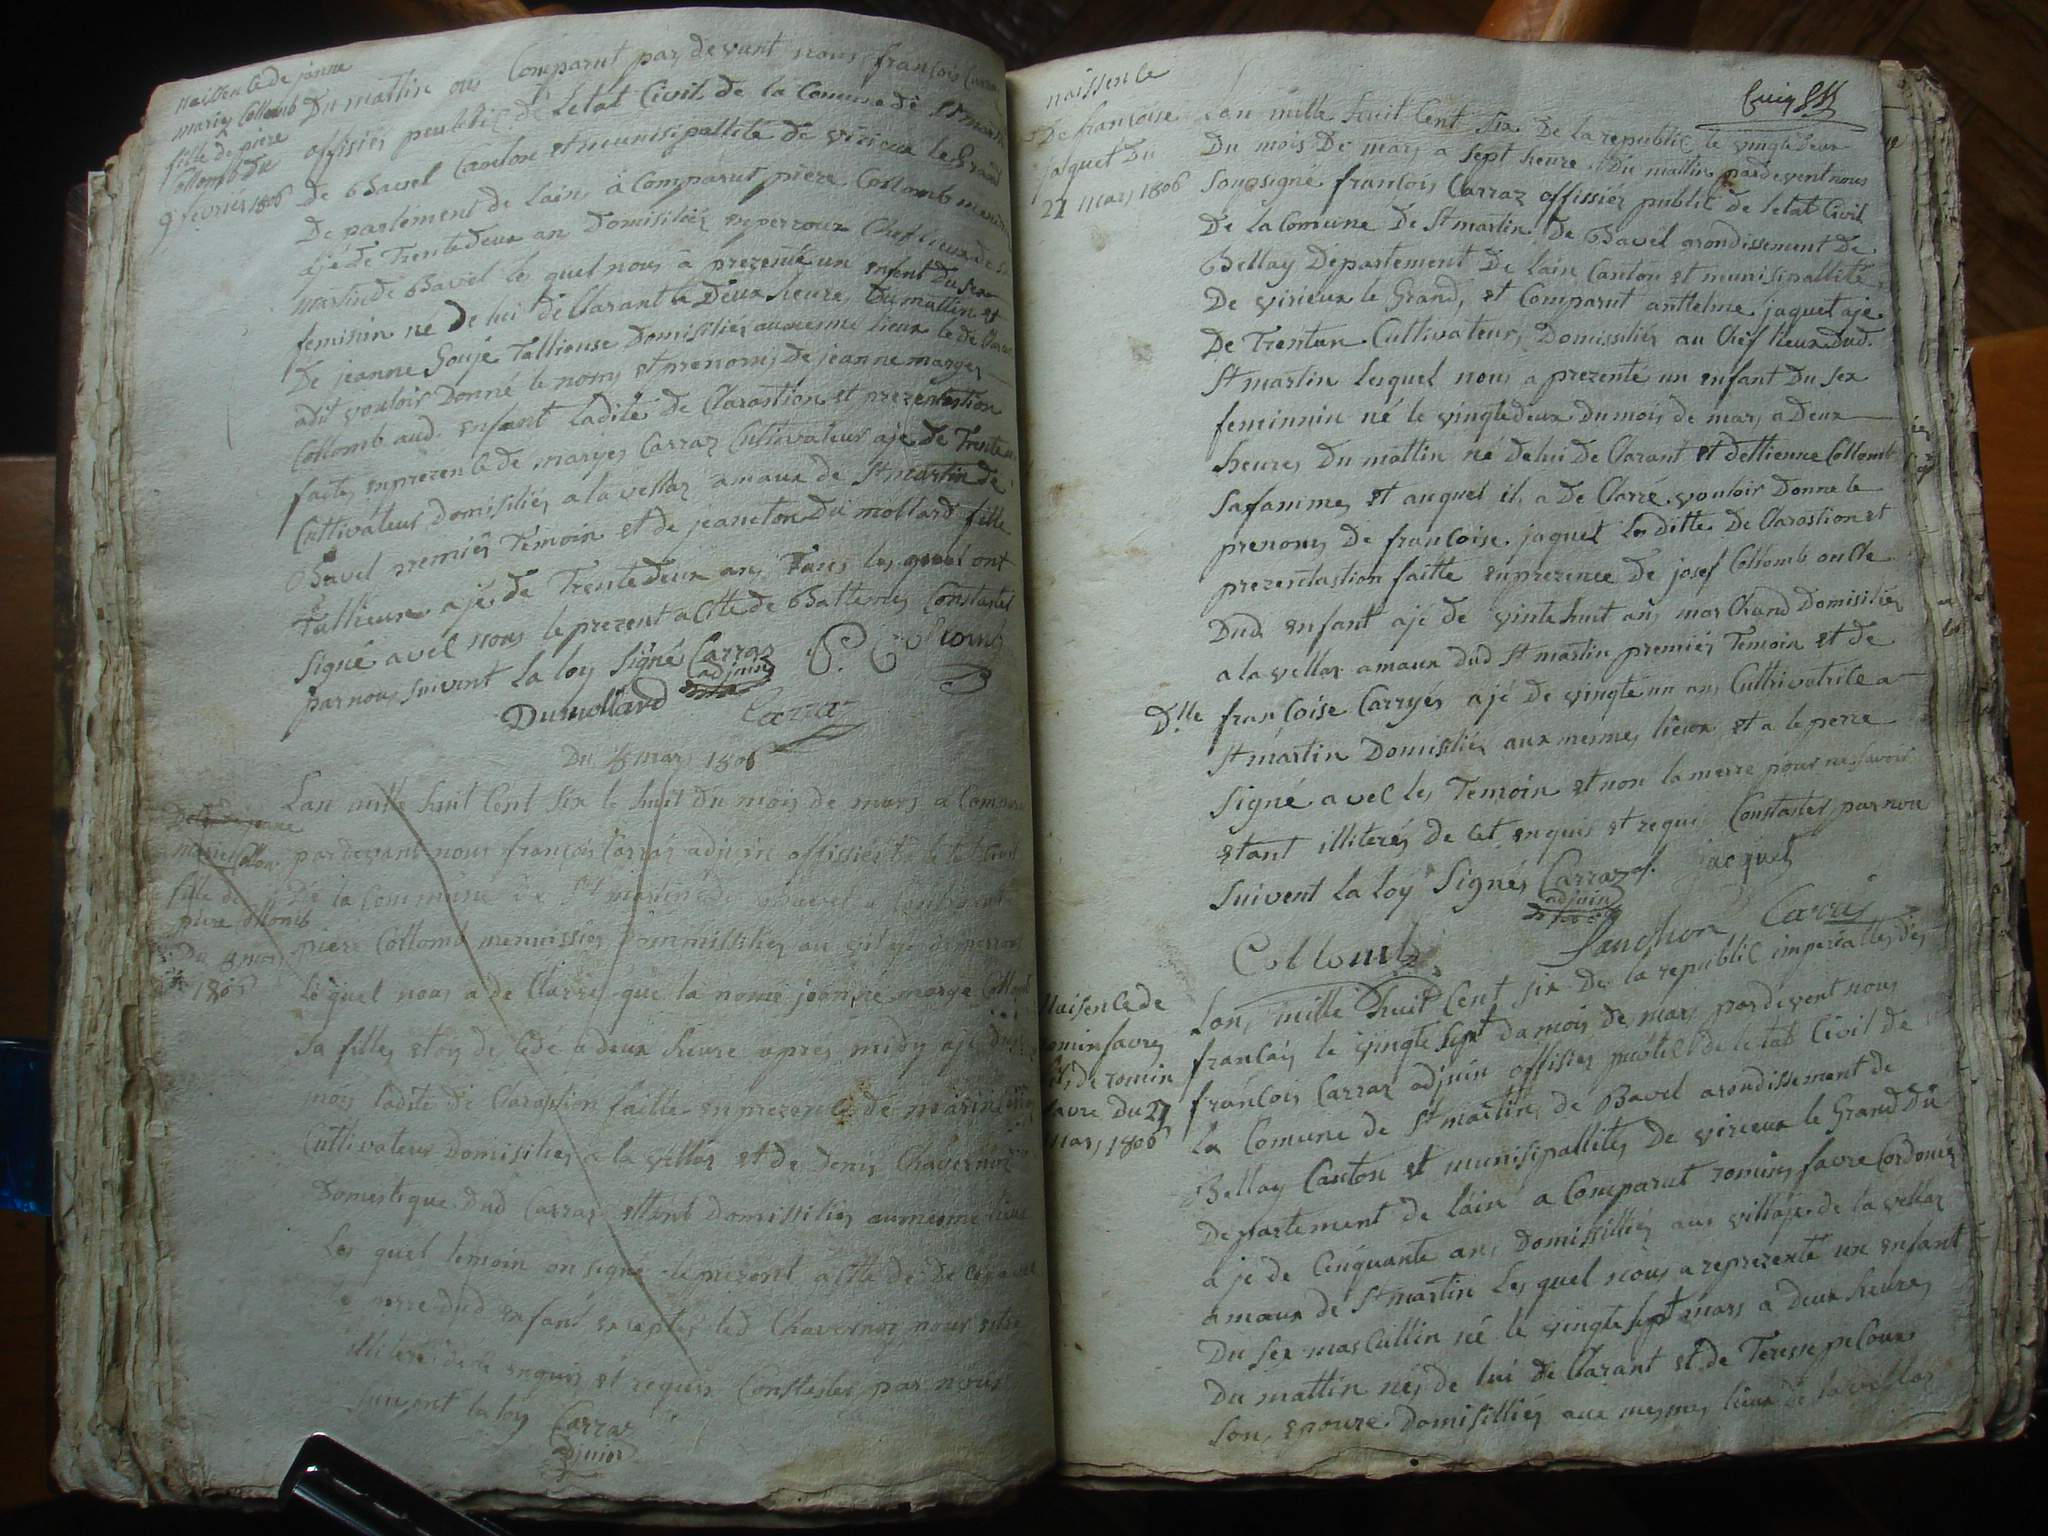 naissencede janne
mariy Collomb
fille de piere
Collomb du
9 fevrier 1806
Du mattin ou Comparut par devant nous françois Carraz
offisiés peublic de Letat Civil de la Comune de St martin
de Bavel Canton et munisipallité de virieux le Grand
Departement de lain, à Comparut pierre Collomb
ajé de Trentedeux an Domisiliés en perroux Cheflieux de St
martin de Bavel le quel nous à prezenté un enfent du sex
feminin né de lui de Clarant à Deux heures du mattin et
De jeanne Goujé Tallieuse Domisiliés au meme lieux le de Clarant
adit vouloir Donné le noms et prenoms de jeanne marye
Collomb aud. enfant ladite de Clarastion et prezentastion
faites enprezence de maryes Carraz Cultivateur ajé de Trente
Cultivateur domisiliés a la vellaz amaux de St martin de
Bavel premiés Témoin et de jeanneton Du mollard fille
Tallieuse ajé de Trentedeux ans Tous les quel ont
signé avec nous le prezent actte de Battemes Constaté
par nous suivent la loy signé Carraz
adjoin
P. Collomb
Dumollard
Carraz
Du 8 mars 1806
marie Collom
fille de
piere Collomb
Du 8 mars
1806
Lan mille huit Cent six le huit du mois de mars a Comparu
pardevant nous françois Carraz adjoin offissiés de letat Civil
De la Commune de St martin de Bavel
piere Collomb mennissies Dommissiliés au vilaje de perroux
Le quel nous a de Clarré que la nomé jeanne marye Collomb
Sa filles et oy de cédé a deux heure aprés midy ajé dun
mois ladite de Clarastion faitte enprezence de marin
Cultivateur Domisiliés a la vellaz et de Denis Chavernoz
Domestique Dud Carraz ettant Domissiliés aumesme lieux
Les quel temoin on signé le prezent actte de De Cés avec
Le perre dud enfant exceptés led Chavernoz pour estre
illiteré de ce enquis et requis Constastés par nous
suivent la loy Carraz
adjuin
naissence
De françoise
jaquet Du
22 mars 1806
Lan mille huit Cent six De la republic le vingtedeux
Du mois De mars a sept heure Du mattin pardevent nous
Sousigné francois Carraz offissiés public de letat Civil
De la Comune De St martin De Bavel arondissement De
Bellay Departement De lain Canton et munisipallité
De virieux le Grand, et Comparut anttelme jaquet aje
De Trentun Cultivateur, Domissiliés au Chef lieux Dud.
St martin Lesquel nous a prezenté un enfant Du sex
feminnin né le vingtedeux du mois de mars a Deux
heures Du mattin né de lui de Clarant et dettienne Collomb
Safamme, et auquel il a De Clarré vouloir Donne le
prenoms de francoise jaquet Ladite De Clarastion et
prezentastion faitte enprezence de josef Collomb oncle
Dud enfant ajé de vintehuit ans marchand Domisiliés
a la vellaz amaux dud St martin premiés Temoin et de
Dlle françoise Carryés ajé de vingte un ans Cultivatrice a
St martin Domisiliés aux mesmes lieux et a le perre
Signé avec les Temoin et non la merre pour ne savoir
etant illiterés de cet enquis et requis Constastés par nou
suivent la loy signés Carraz
adjoin
jacquet
Collomb
Fanchon Carrié
Naisencede
romin favre
fils de romin
favre Du 27
Mars 1806
Lan mille huit Cent six De la republic imperialles des
français le vingte sept du mois de mars par devent nous
françois Carraz adjuin offisiés public de letat Civil de
La Comune de St martin de Bavel arondissement de
Bellay Canton et munisipallités De virieux le Grand Du
Departement de lain a Comparut romin favre Cordonniés
ajé de Cinquante ans Domissilliés aus villaje de la vellaz
amaux de St martin Lesquel nous a reprezenté un enfant
Du sex masCullin né le vingte sept mars a Deux heures
Du mattin nés de lui de Clarant et de Teresse peloux
Son epouze Domisilliés aux mesmes lieux de la vellaz